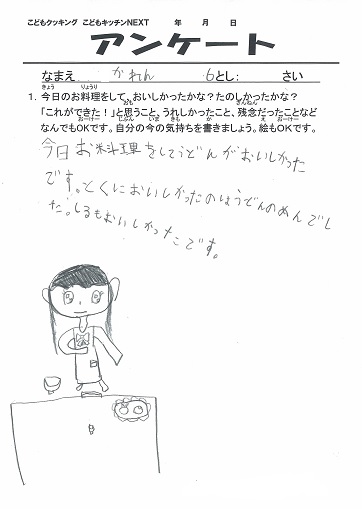 こどもクッキング こどもキッチンNEXT 年 月 日
アンケート
なまえ かれん 6とし： さい
きょう りょうり
1. 今日のお料理をして、おいしかったかな？たのしかったかな？
おも ざんねん
「これができた！」と思うこと、うれしかったこと、残念だったことなど
おーけー じぶん いま きも か え おーけー
なんでもOKです。自分の今の気持ちを書きましょう。絵もOKです。
今日お料理をしてうどんがおいしかった
です。とくにおいしかったのはうどんのめんでし
た。しるもおいしかったこです。